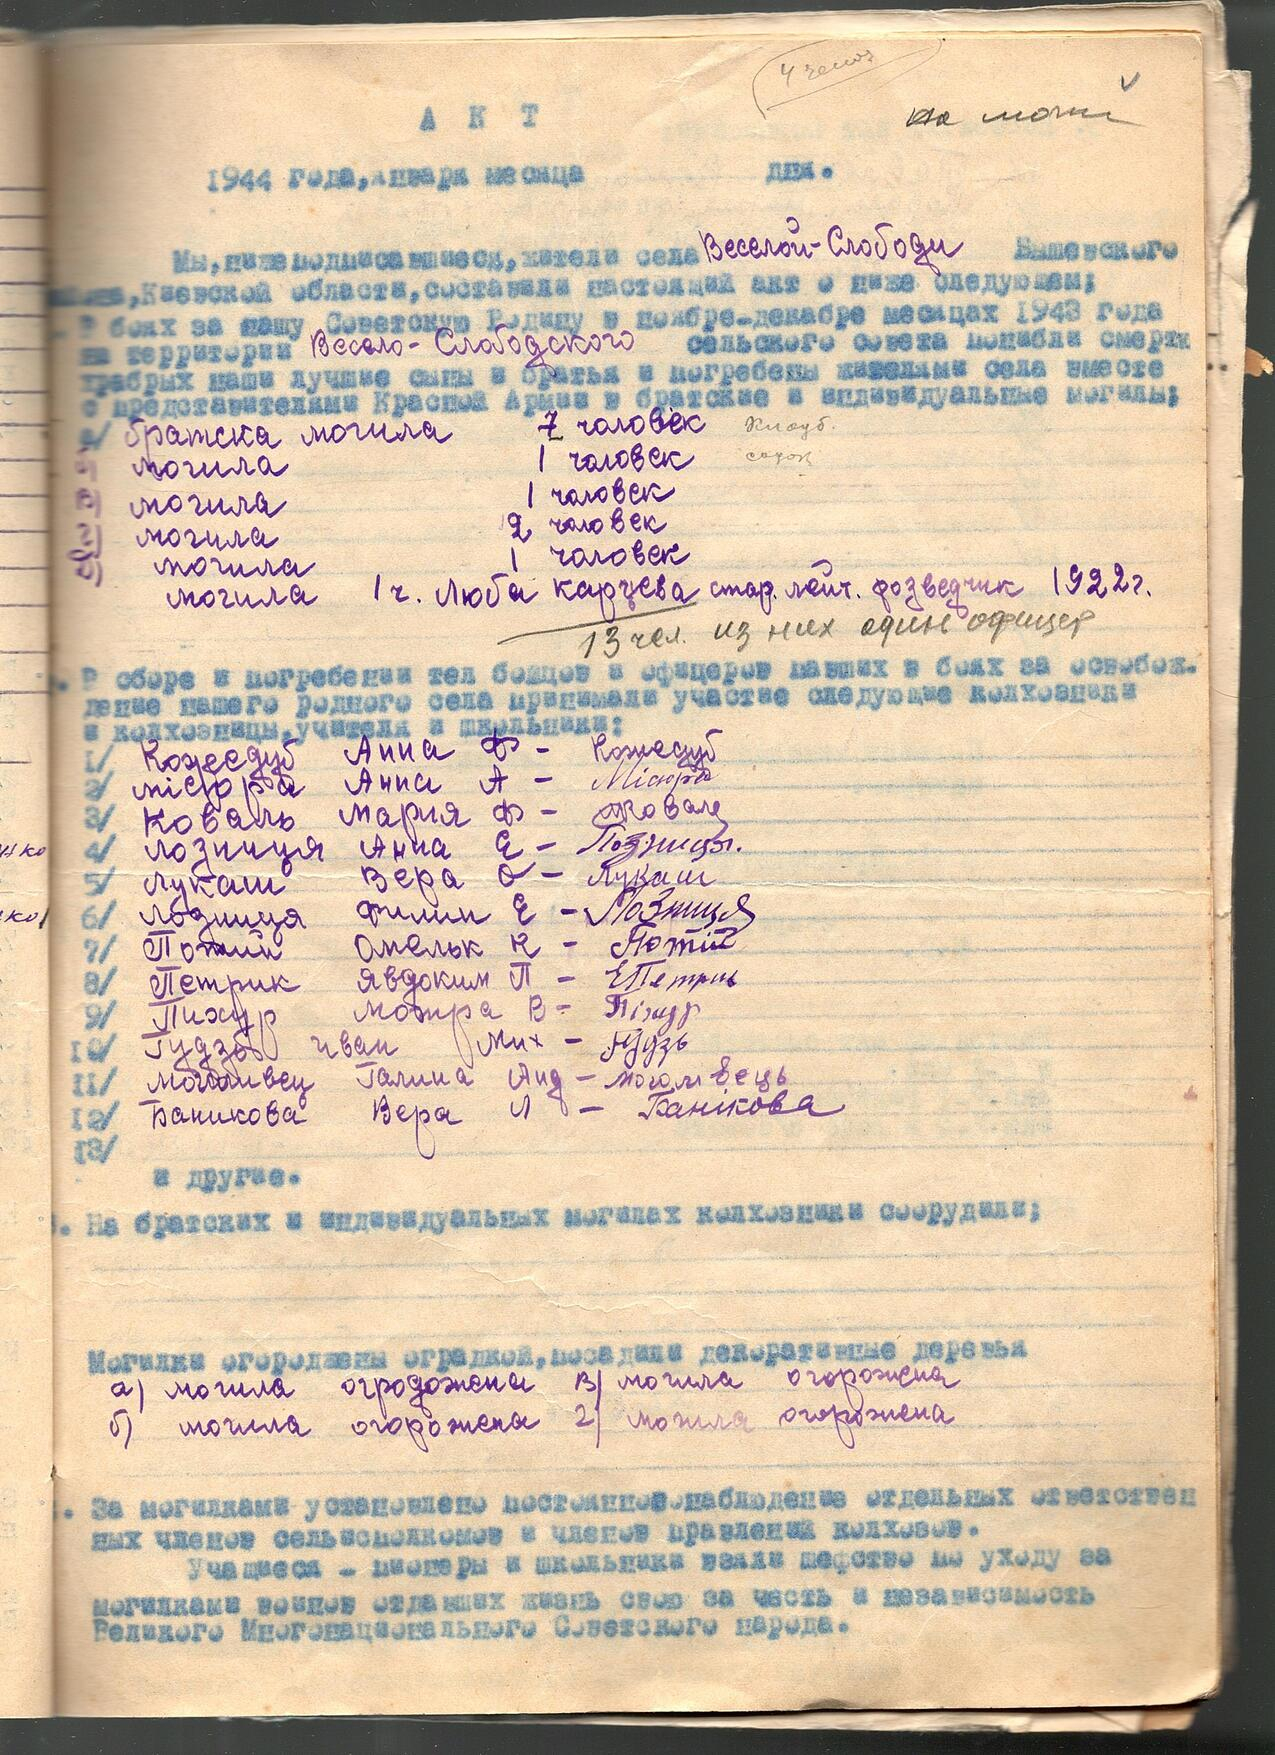 А К Т
1944 года,января месяца дня.
Мы,нижеподписавшиеся,жители села Веселой-Слободи Бышевского
района,Киевской области,составили настоящий акт о ниже следующем;
В боях за нашу Советскую Родину в ноябре-декабре месяцах 1943 года
на территории Весело-Слободского сельского совета погибли смертю
храбрых наши лучшие сыны и братья и погребены жителями села вместе
с представителями Красной Армии в братские и индивидуальные могилы;
братска могила 7 чоловєк
могила 1 чоловєк
могила 1 чоловєк
могила 2 чоловєк
могила 1 чоловєк
могила 1 ч. Люба Карцева стар. лейт. розведчик 1922г.
13 чел. из них один офицер
. В сборе и погребении тел бойцов и офицеров павших в боях за освобож-
дение нашего родного села принимали участие следующие колхозники
и колхозницы,учителя и школьники;
1/ Кожедуб Анна Ф - Кожедуб
2/ Місюра Анна А - Місюра
3/ Коваль Мария Ф - Коваль
4/ Лозниця Анна Е -
5/ Лукаш Вера О - Лукаш
6/ Лозниця Филип Е - Лозниця
7/ Потий Омельк К - Потій
8/ Петрик Явдоким П - ЕПетрик
9/ Пижур Мотра В -
10/ Гудзь Иван Мих - Гудзь
11/ Галина Анд -
12/ Баникова Вера Л - Банікова
13/
и другие.
. На братских и индивидуальных могилах колхозники соорудили;
Могилки огорожены оградкой,посадили декоративные деревья
а) могила огродожена в) могила огорожена
б) могила огорожена г) могила огорожена
. За могилками установлено постоянное наблюдение отдельных ответствен
ных членов сельисполкомов и членов правлений колхозов.
Учащиеся - пионеры и школьники взяли шефство по уходу за
могилками воинов отдавших жизнь свою за честь и независимость
Великого Многонационального Советского народа.